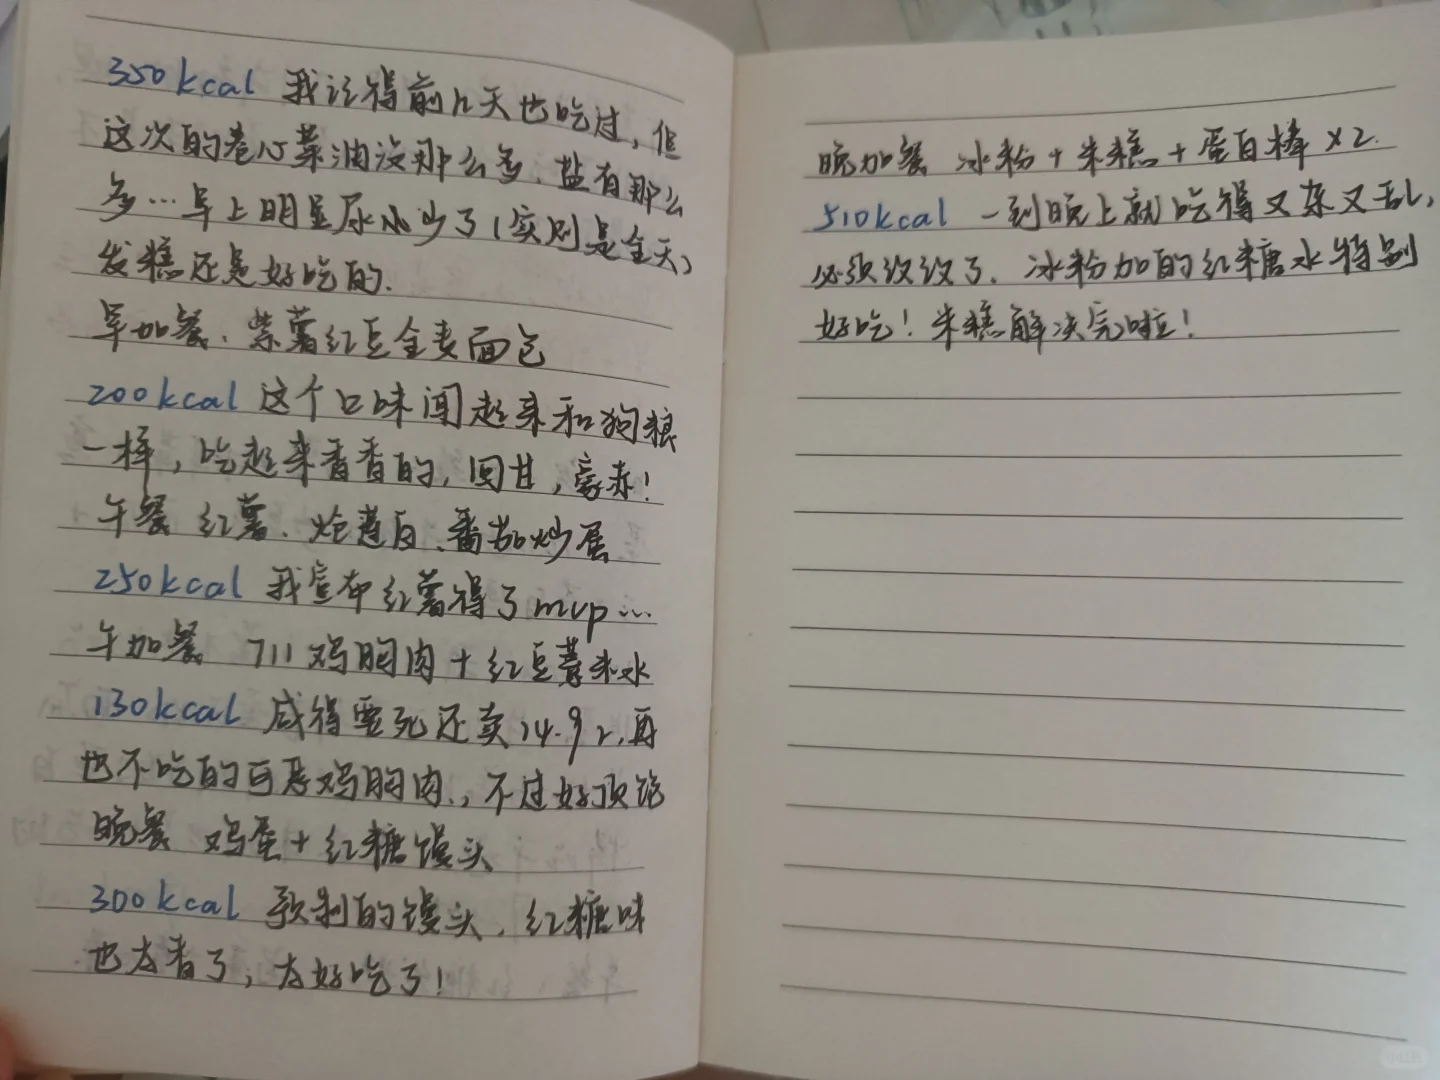 350kcal 我记得前几天也吃过，但
这次的卷心菜油没那么多、盐有那么
多…早上明显尿水少了（实则是全天）
发糕还是好吃的.
早加餐、紫薯红豆全麦面包
200kcal 这个口味闻起来和狗粮
一样，吃起来香香的，回甘，豪赤！
午餐 红薯、炝莲白、番茄炒蛋
250kcal 我宣布红薯得了mvp…
午加餐 711鸡胸肉+红豆薏米水
130kcal 咸得要死还卖14.9，再
也不吃的可恶鸡胸肉，不过好顶饱
晚餐 鸡蛋+红糖馒头
300kcal 预制的馒头、红糖味
也太香了，太好吃了！
晚加餐 冰粉+米糕+蛋白棒×2.
510kcal 一到晚上就吃得又杂又乱，
必须改改了、冰粉加的红糖水特别
好吃！米糕解决完啦！